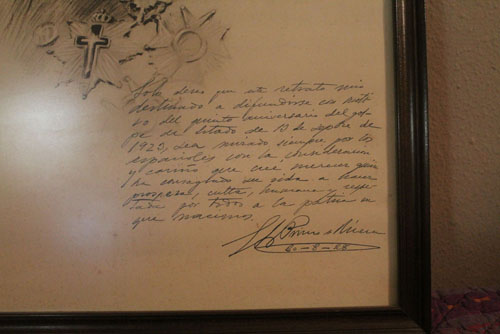 Solo deseo que este retrato mio
destinado a difundirse con moti-
vo del quinto aniversario del gol-
pe de Estado de 13 de Sepbre de
1923, sea mirado siempre por los
españoles con la consideracion
y cariño que cree merecer quien
ha consagrado su vida a hacer
prospera, culta, humana y respe-
tada por todos a la patria en
que nacimos.
Primo de Rivera
20-8-28